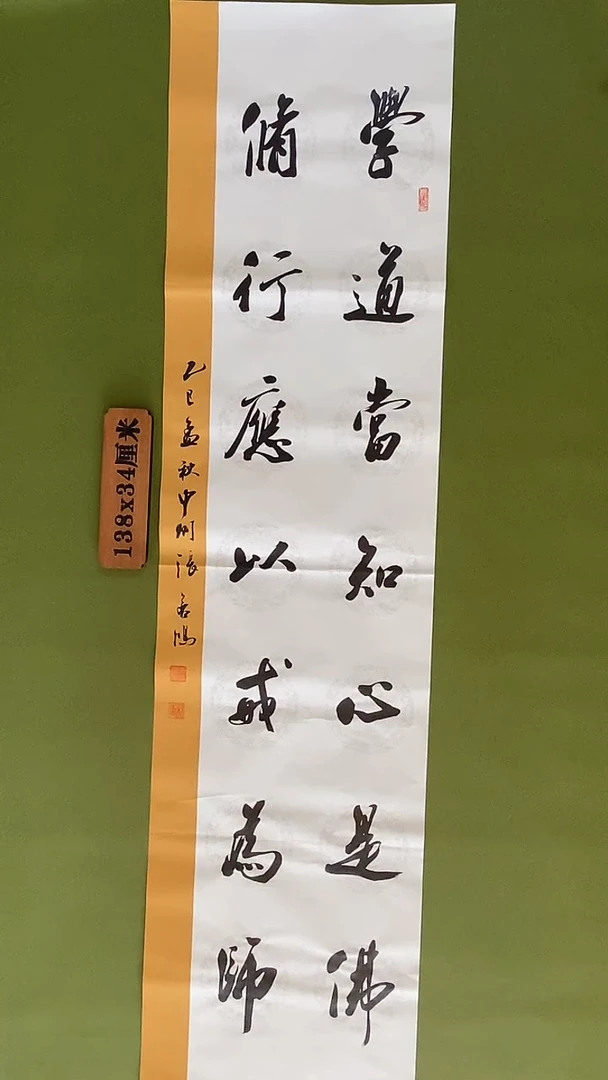 學道當知心是佛
脩行應以戒為師
乙巳孟秋中州張善鴻
138x34厘米